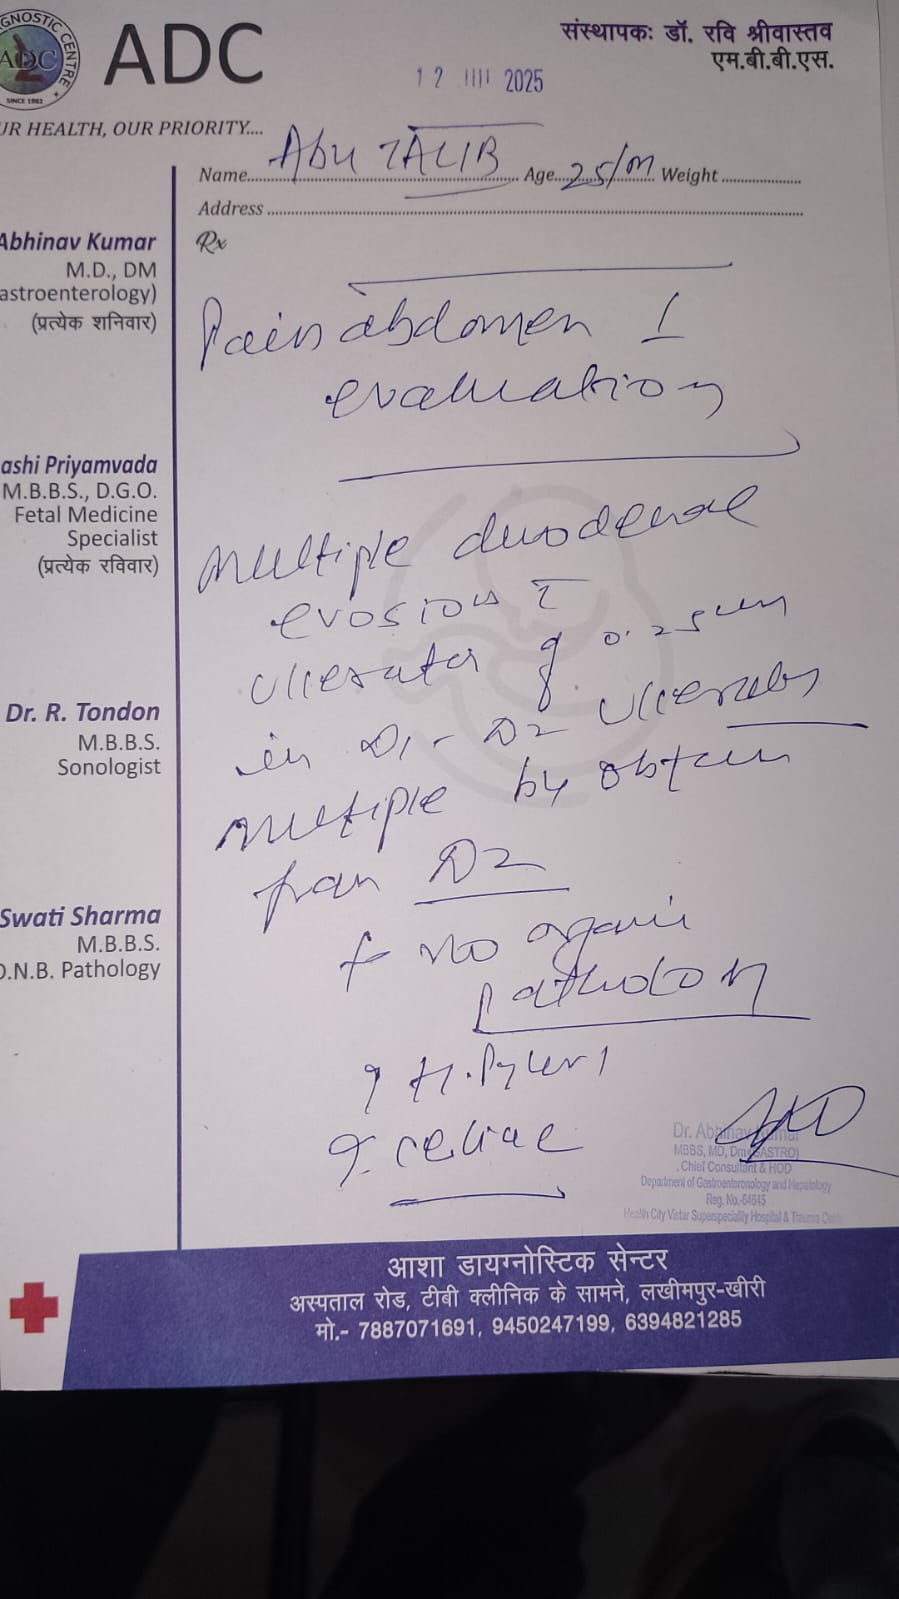 GNOSTIC CENTRE
ADC
SINCE 1982
ADC
संस्थापकः डॉ. रवि श्रीवास्तव
एम.बी.बी.एस.
12 2025
UR HEALTH, OUR PRIORITY....
Name Abu TALIB Age 25/M Weight
Address
Rx
Abhinav Kumar
M.D., DM
astroenterology)
(प्रत्येक शनिवार)
Pain abdomen
evaluation
ashi Priyamvada
M.B.B.S., D.G.O.
Fetal Medicine
Specialist
(प्रत्येक रविवार)
multiple duodenal
erosions
of 0.25cm
in D1-D2
Dr. R. Tondon
M.B.B.S.
Sonologist
multiple
from D2
Swati Sharma
M.B.B.S.
D.N.B. Pathology
No organic
pathology
? H. Pylori
? celiac
Dr. Abhinav Kumar
MBBS, MD, Dm (GASTRO)
Chief Consultant & HOD
Department of Gastroenteronology and Hepatology
Reg. No.-64645
Health City Vistar Superspeciality Hospital & Trauma
आशा डायग्नोस्टिक सेन्टर
अस्पताल रोड, टीबी क्लीनिक के सामने, लखीमपुर-खीरी
मो.- 7887071691, 9450247199, 6394821285